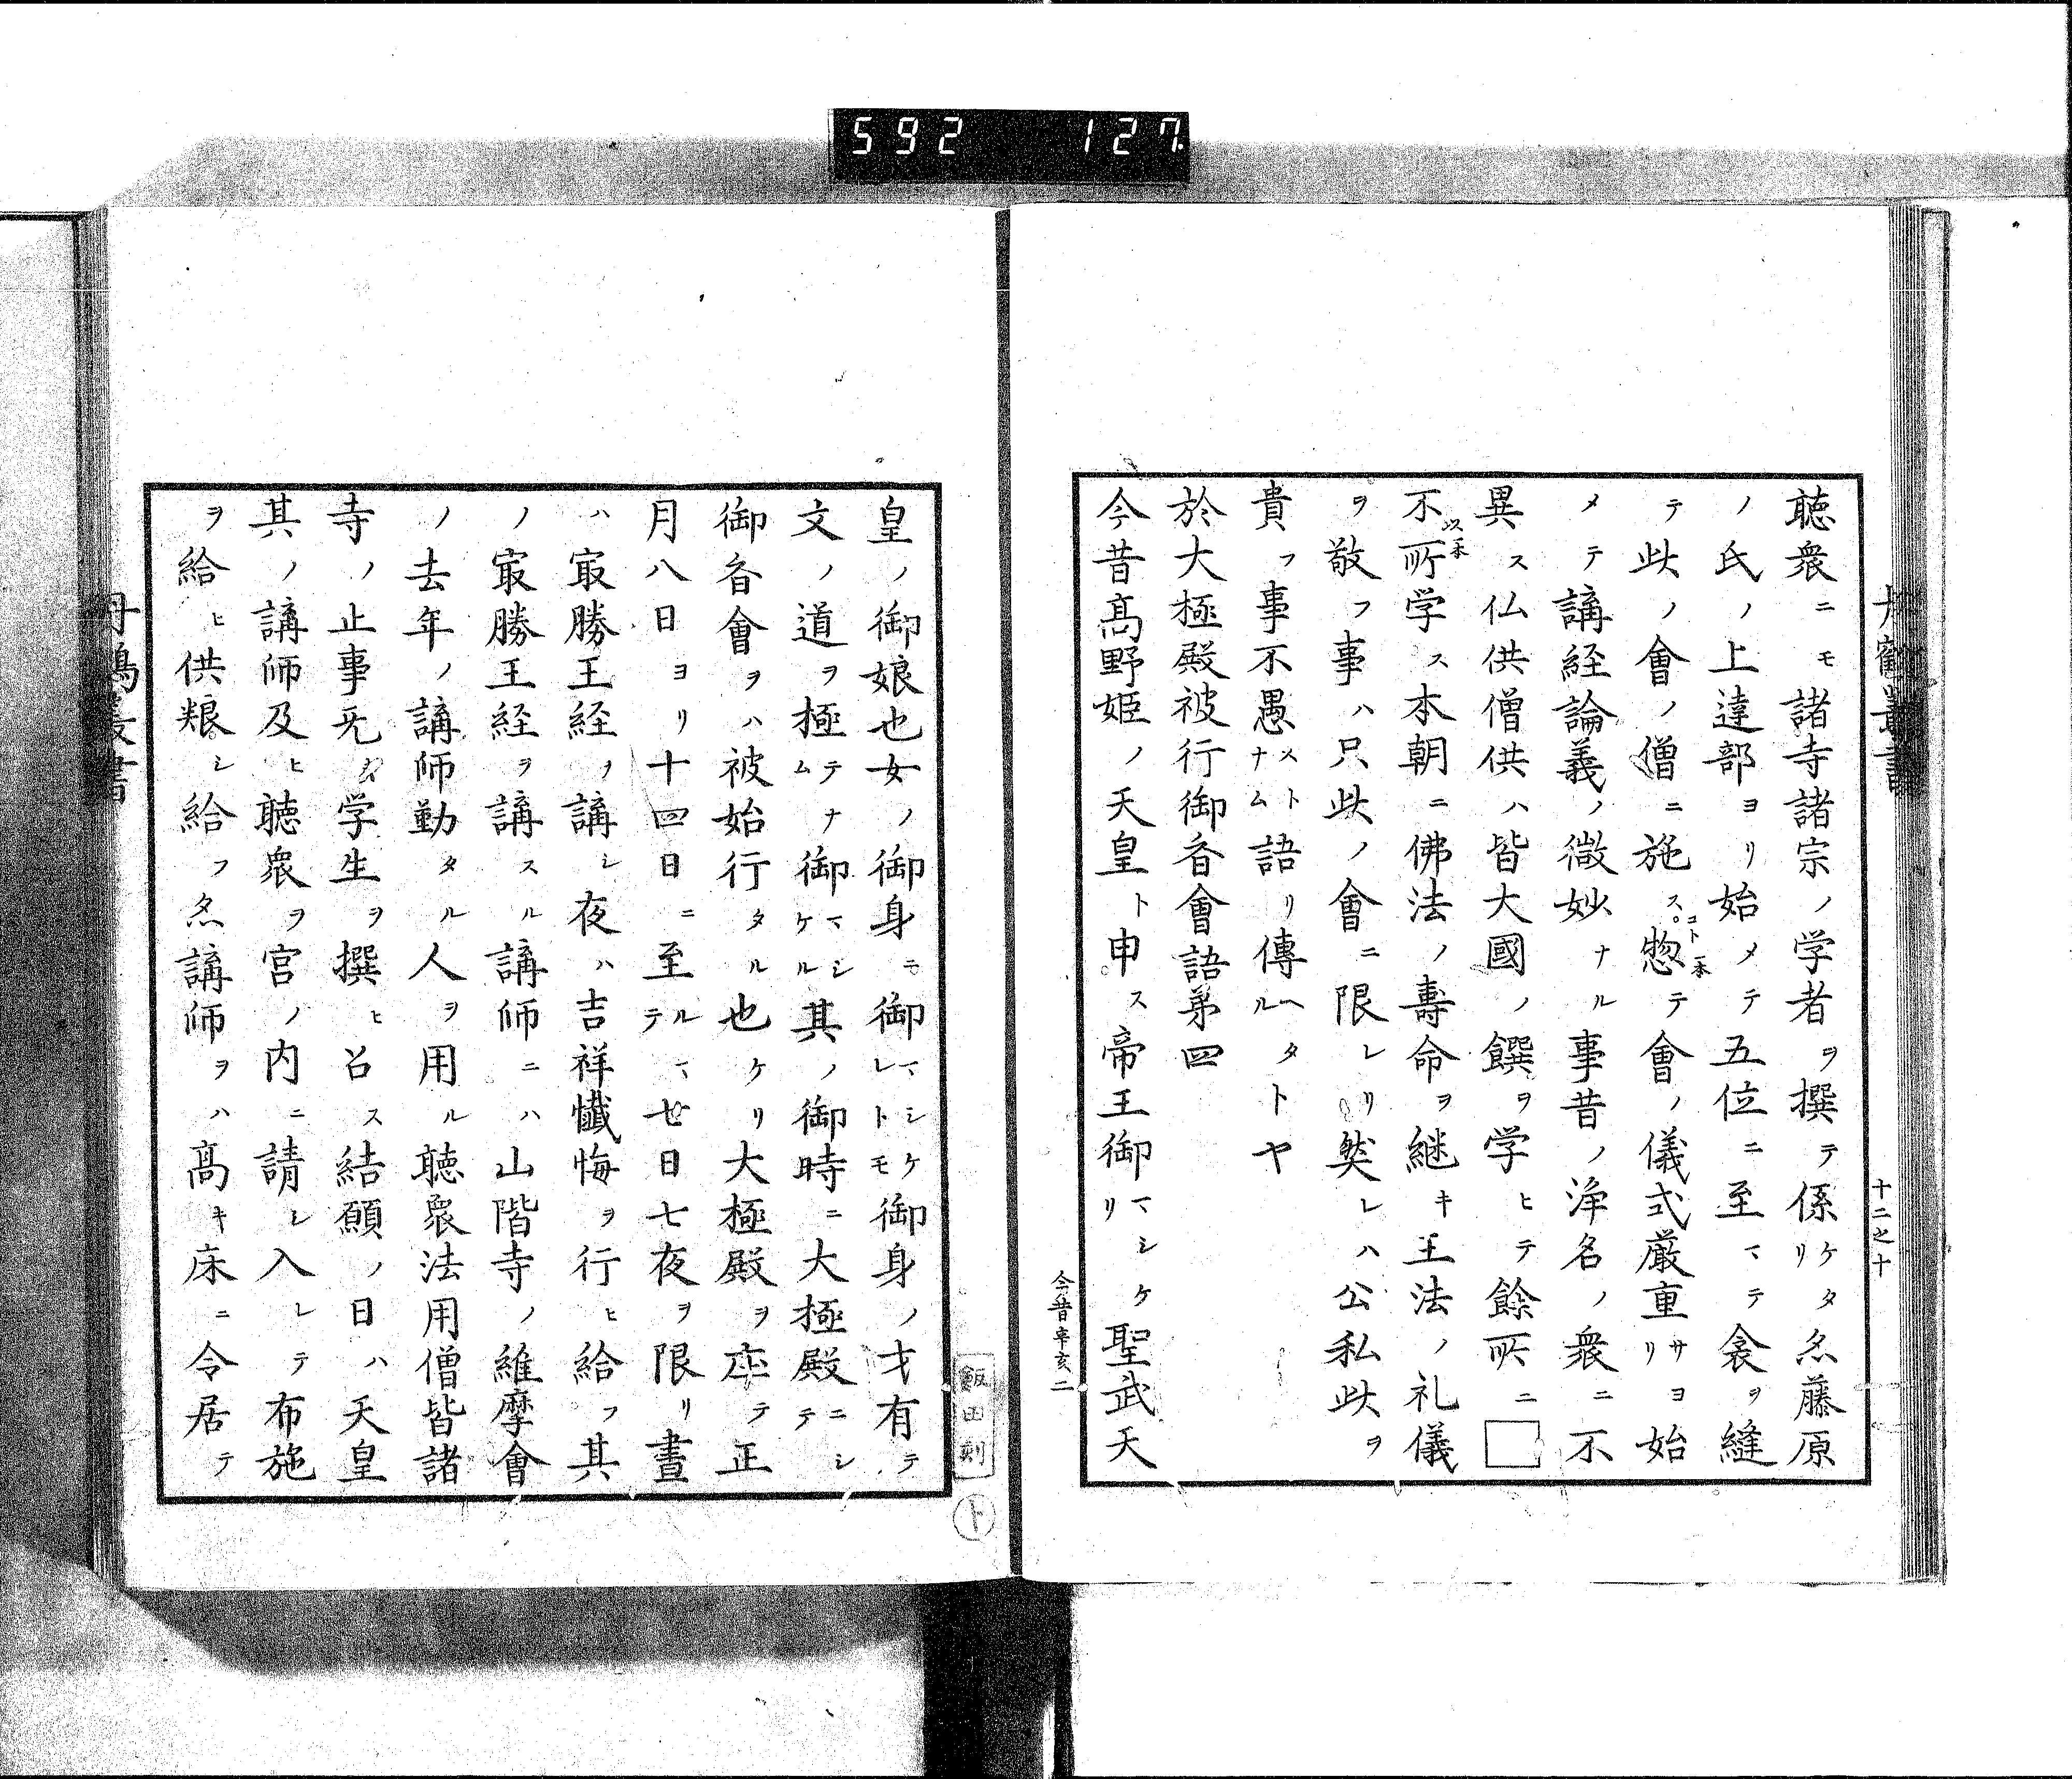 592 127
丹鶴叢書
十二之十
聴衆ニモ諸寺諸宗ノ学者ヲ撰テ係ケタリ亦藤原
ノ氏ノ上達部ヨリ始メテ五位ニ至マテ衾ヲ縫
テ此ノ會ノ僧ニ施ス。コト一本惣テ會ノ儀式厳重サヨリ始
メテ講経論義ノ微妙ナル事昔ノ浄名ノ衆ニ不
異ス仏供僧供ハ皆大國ノ饌ヲ学ヒテ餘所ニ□
不所以一本学ス本朝ニ佛法ノ壽命ヲ継キ王法ノ礼儀
ヲ敬フ事ハ只此ノ會ニ限レリ然レハ公私此ヲ
貴フ事不愚ストナム語リ傳ヘタルトヤ
於大極殿被行御斎會語第四
今昔高野姫ノ天皇ト申ス帝王御マシケリ聖武天
今昔辛亥二
皇ノ御娘也女ノ御身ニ御マシケレトモ御身ノ才有テ
文ノ道ヲ極テナム御マシケル其ノ御時ニ大極殿ニシテ
御斎會ヲハ被始行タル也ケリ大極殿ヲ庄テ正
月八日ヨリ十四日ニ至ルマテ七日七夜ヲ限リ晝
ハ冣勝王経ヲ講シ夜ハ吉祥懺悔ヲ行ヒ給フ其
ノ冣勝王経ヲ講スル講師ニハ山階寺ノ維摩會
ノ去年ノ講師勤タル人ヲ用ル聴衆法用僧皆諸
寺ノ止事旡キ学生ヲ撰ヒ召ス結願ノ日ハ天皇
其ノ講師及ヒ聴衆ヲ宮ノ内ニ請シ入レテ布施
ヲ給ヒ供粮シ給フ亦講師ヲハ高キ床ニ令居テ
飯田刻
ト
丹鶴叢書